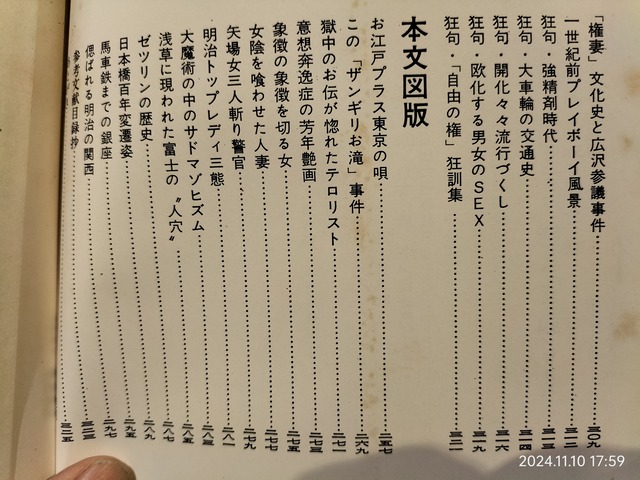 「権妻」文化史と広沢参議事件……三〇九
一世紀前プレイボーイ風景……三一一
狂句・強精剤時代……三一三
狂句・大車輪の交通史……三一四
狂句・開化々々流行づくし……三一六
狂句・欧化する男女のSEX……三一九
狂句・「自由の権」狂訓集……三二一
本文図版
お江戸プラス東京の唄……二五七
この「ザンギリお滝」事件……二六九
獄中のお伝が惚れたテロリスト……二七一
意想奔逸症の芳年艶画……二七三
象徴の象徴を切る女……二七五
女陰を喰わせた人妻……二七七
矢場女三人斬り警官……二七九
明治トップレディ三態……二八一
大魔術の中のサドマゾヒズム……二八三
浅草に現われた富士の〝人穴〟……二八五
ゼツリンの歴史……二八七
日本橋百年変遷姿……二八九
馬車鉄までの銀座……二九五
偲ばれる明治の関西……二九七
参考文献目録抄……三二三
2024.11.10 17:59